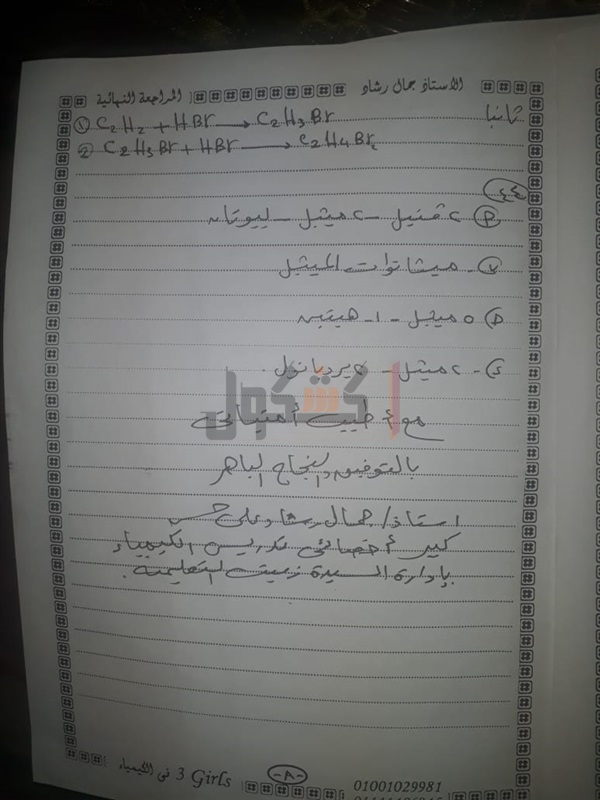 الاستاذ جمال رشاد المراجعة النهائية
ثانيا
① C2H2 + HBr → C2H3Br
② C2H3Br + HBr → C2H4Br2
٤٤
٢ فنيل - ٢ ميثيل - بيوتان
ب - ميثانوات الميثيل
٥ ميثيل - ١ - هبتين
د - ٢ ميثيل - ٢ بروبانول.
كشكول
مع أطيب أمنياتى
بالتوفيق والنجاح الباهر
استاذ / جمال رشاد على حسن
كبير أخصائى تدريس الكيمياء
بإدارة السيدة زينب التعليمية.
3 Girls فى الكيمياء
-٨-
01001029981